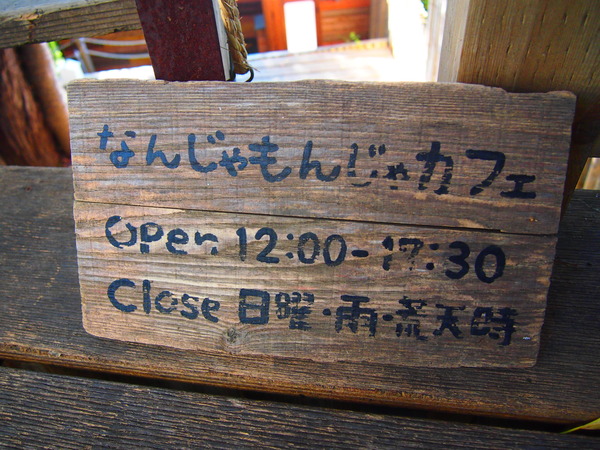 なんじゃもんじゃカフェ
Open 12:00-17:30
Close 日曜・雨・荒天時